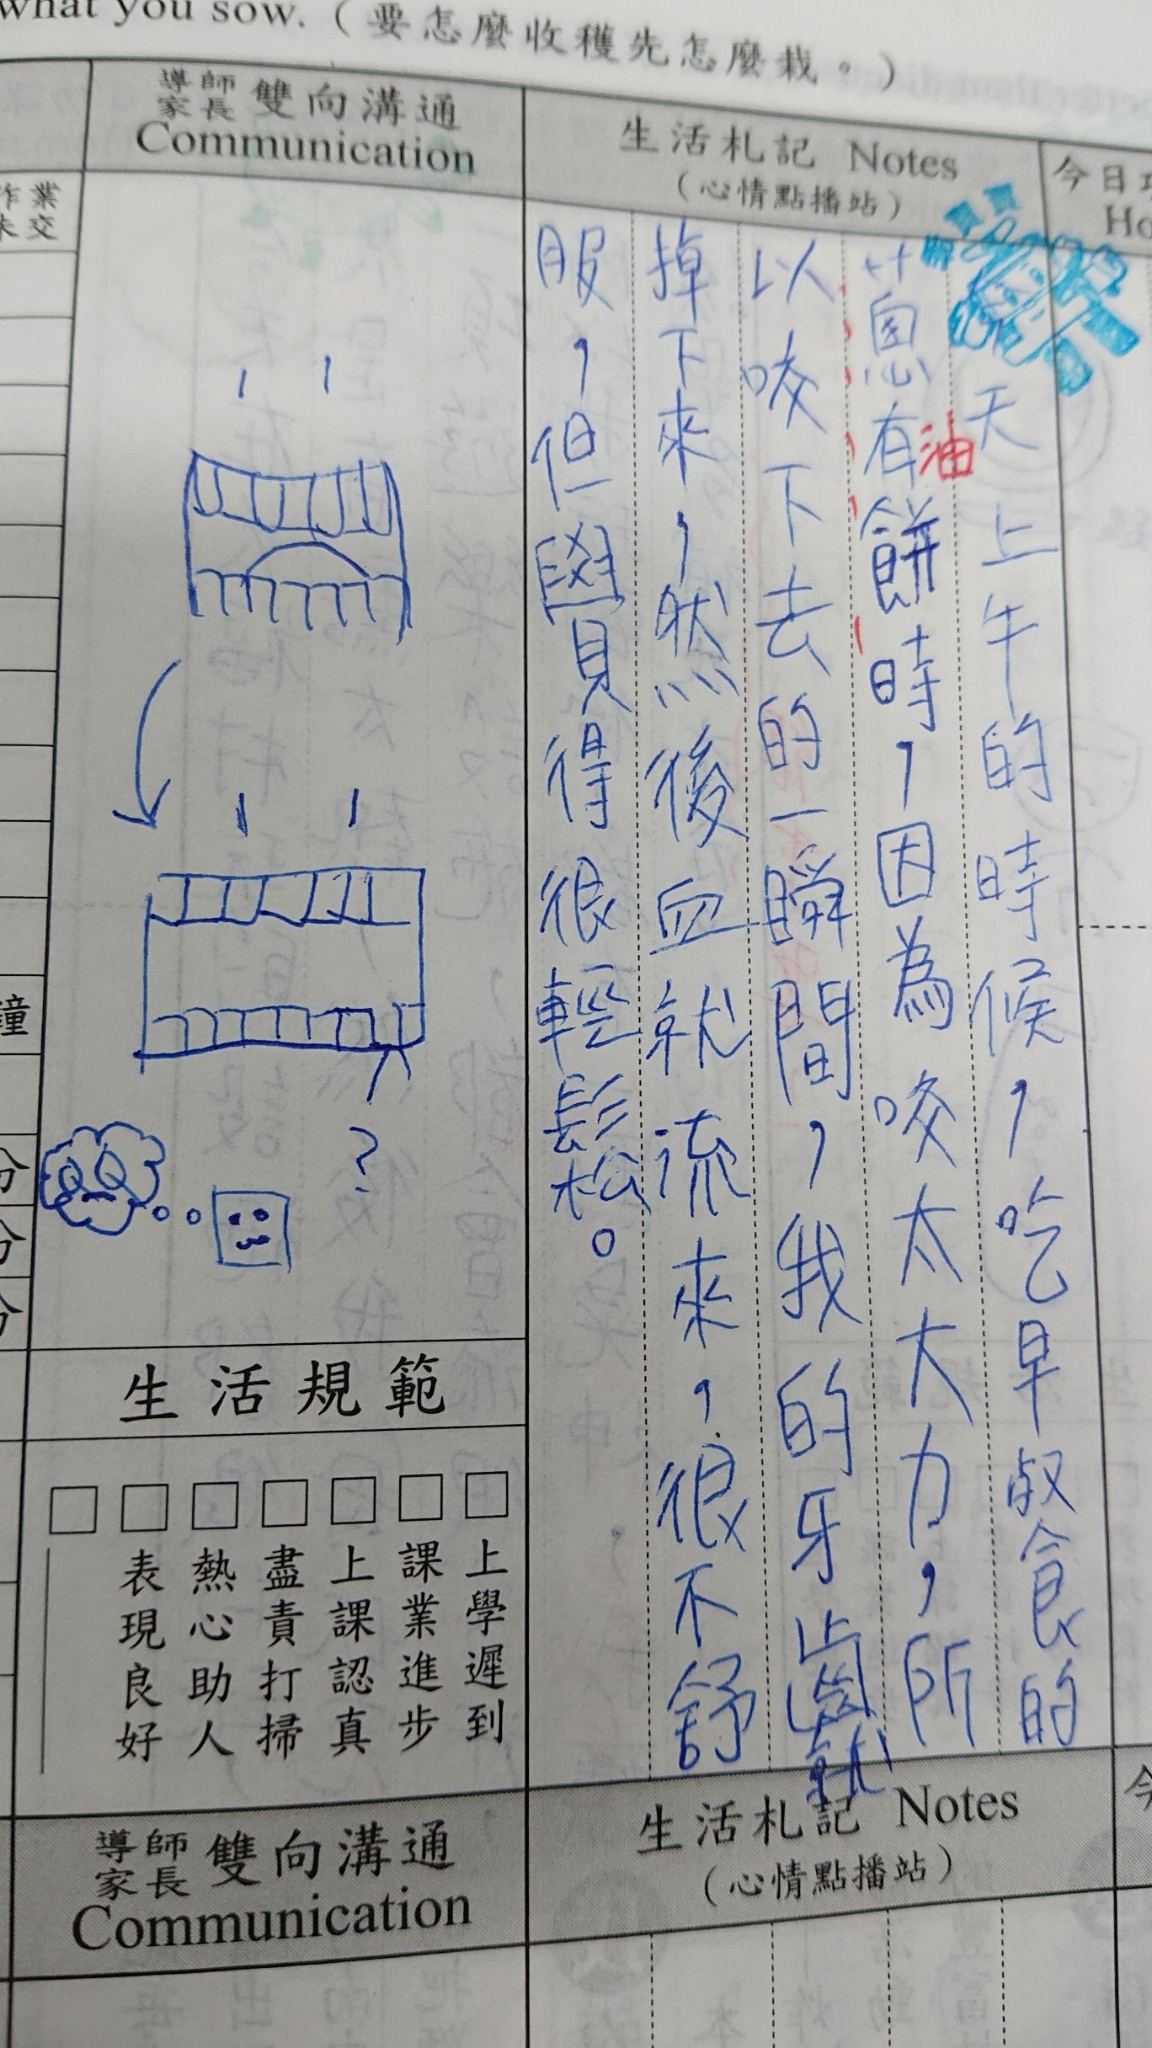 what you sow.（要怎麼收穫先怎麼栽。）
導師家長 雙向溝通
Communication
生活札記 Notes
（心情點播站）
今日
Ho
作業
未交
天上午的時候，吃早飧的
蔥有油餅時，因為咬太大力，所
以咬下去的一瞬間，我的牙齒就
掉下來，然後血就流來，很不舒
服，但覺得很輕鬆。
?
鐘
分
分
分
生活規範
□上學遲到
□課業進步
□上課認真
□盡責打掃
□熱心助人
□表現良好
□
導師家長 雙向溝通
Communication
生活札記 Notes
（心情點播站）
今